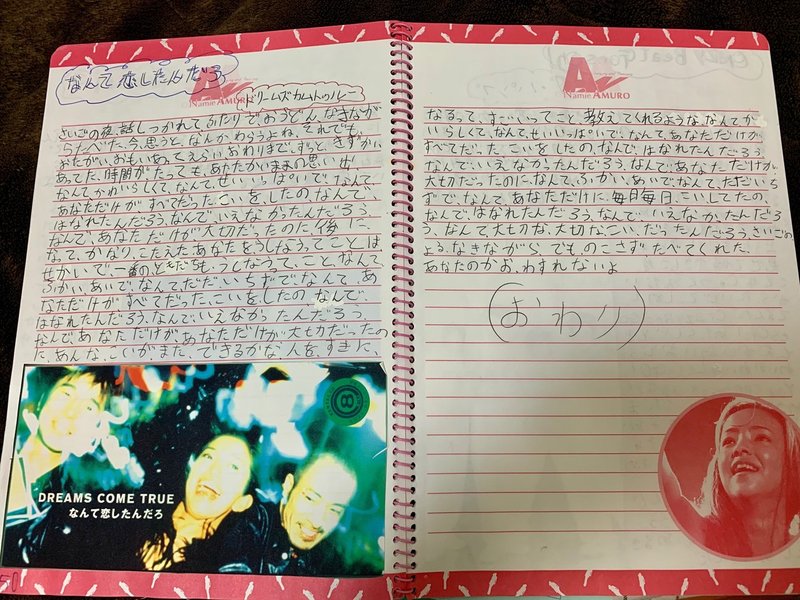 なんて恋したんだろ
ドリームズカムトゥルー
A
Namie AMURO
さいごの夜、話しつかれて、ふたりでおうどん、なきなが
らたべた、今、思うと、なんかわらうよね、それでも
おたがい、おもいあって、えらいおわりまで、ずっと、きずかい
あってた、時間が、たっても、あたたかいままの思い出
なんて、かわいらしくて、なんて、せいいっぱいで、なんて
あなただけが、すべてだった、こいを、したの、なんで、
はなれたんだろう、なんで、いえなかったんだろう
なんで、あなただけが大切だったのに、後に
なって、かなり、こたえた、あなたをうしなうってことは
せかいで、一番のともだちも、うしなうって、こと、なんて
ふかいあいで、なんてただいちずで、なんて、あ
なただけがすべてだった、こいをしたの、なんで、
はなれたんだろう、なんで、いえなかったんだろう、
なんで、あなただけが、あなただけが大切だったの
に、あんな、こいがまた、できるかな、人を、すきに、
DREAMS COME TRUE
なんて恋したんだろ
A
Namie AMURO
なるって、すごいってこと、教えてくれるような、なんてか
いらしくて、なんて、せいいっぱいで、なんて、あなただけが
すべてだった、こいをしたの、なんで、はなれたんだろう、
なんで、いえなかったんだろう、なんで、あなただけが
大切だったのに、なんて、ふかい、あいで、なんて、ただいち
ずで、なんて、あなただけに、毎月毎日、こいしてたの、
なんで、はなれたんだろう、なんで、いえなかったんだろ
う、なんて、大切な、大切な、こい、だったんだろう、さいごの
よる、なきながら、でものこさず、たべてくれた、
あなたのかお、わすれないよ
(おわり)